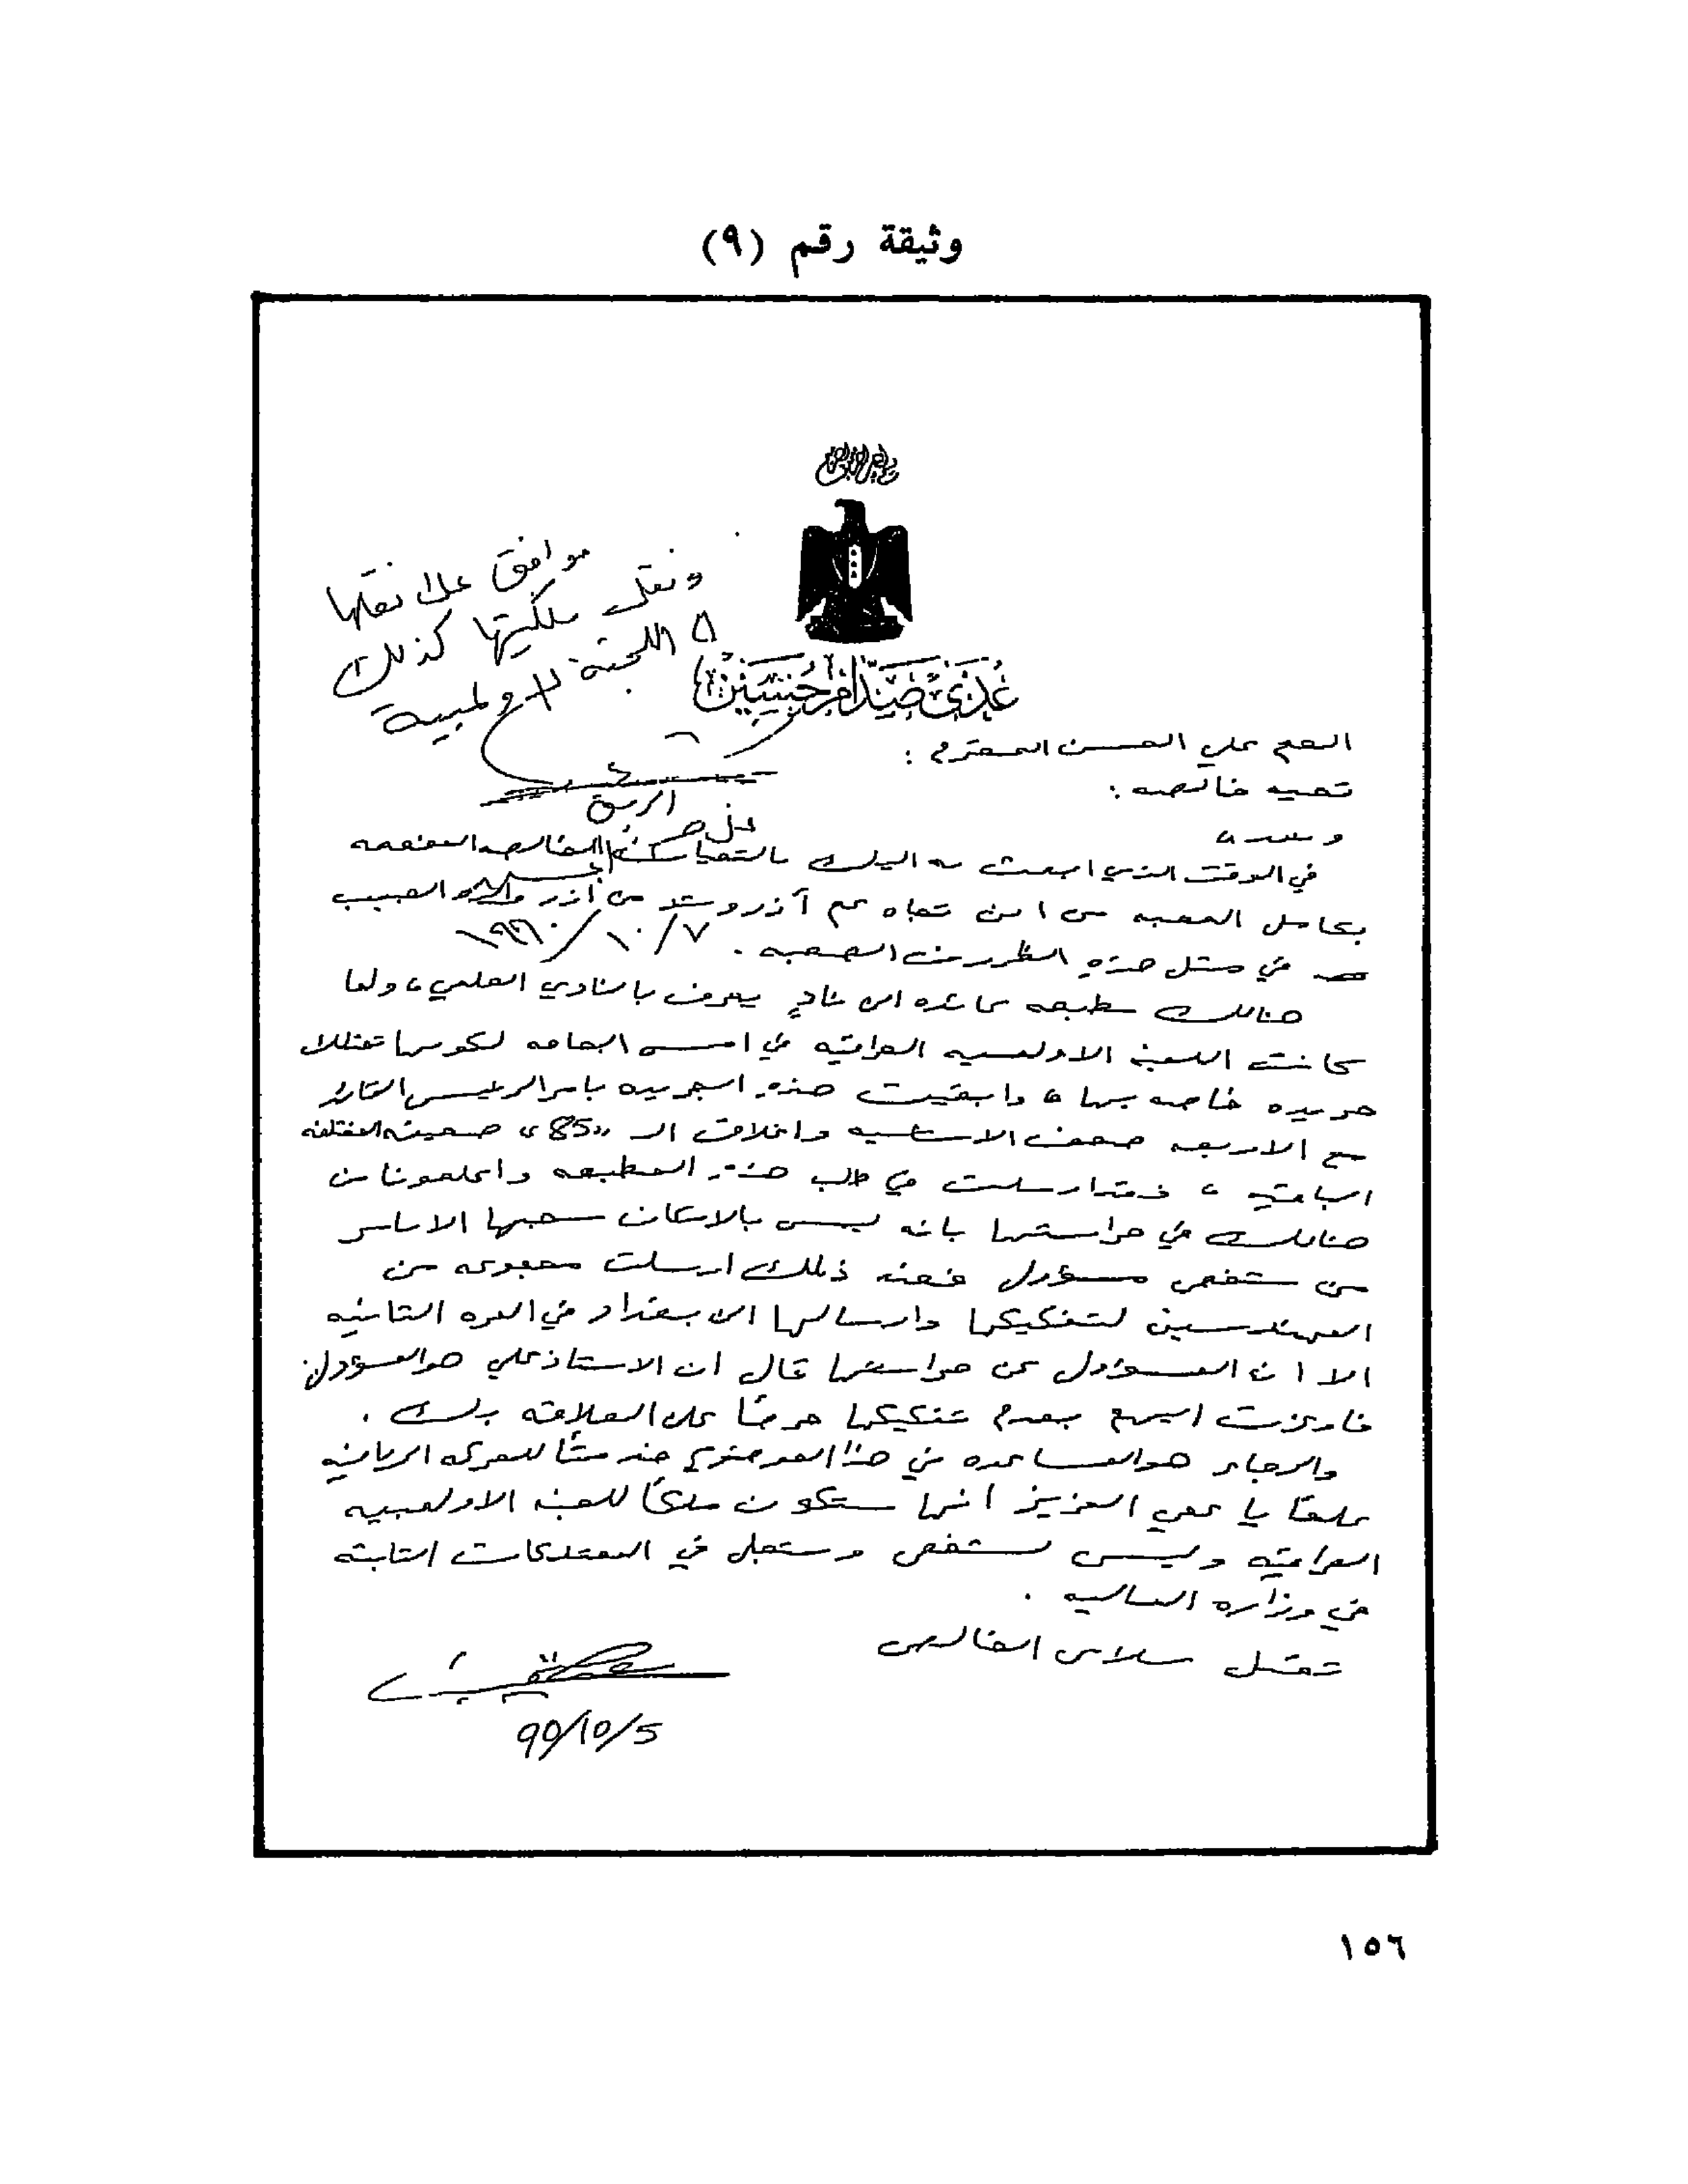 وثيقة رقم (٩)
بسم الله الرحمن الرحيم
عدي صدام حسين
موافق على نقلها
ونقل ملكيتها كذلك
الى اللجنة الاولمبية
على حسن
١٩٩٠/١٠/٧
العم علي الحسن المحترم :
تحيه خالصه :
وبعد ،
في الوقت الذي ابعث به اليك بالتحيات الخالصه المفعمه
بكامل المحبه من ابن تجاه عم آذر وسند من آذر الحبيب
في مثل هذه الظروف الصعبه .
هنالك مطبعه عائده الى نادٍ يعرف بالنادي العلمي ، ولما
كانت اللجنه الاولمبيه العراقيه في امس الحاجه لكونها تمتلك
جريده خاصه بها ، وابقيت هذه الجريده بامر الرئيس القائد
مع الاربعه صحف الاساسيه واغلاق الـ "85" صحيفه المختلفه
الباقيه ، فقد ارسلت في طلب هذه المطبعه واعلمونا من
هنالك في حراستها بانه ليس بالامكان سحبها الا بامر
من شخص مسؤول فعند ذلك ارسلت مجموعه من
المهندسين لتفكيكها وارسالها الى بغداد في المره الثانيه
الا ان المسؤول عن حراستها قال ان الاستاذ علي هو المسؤول
فاوعزت اليهم بعدم تفكيكها حرصًا على العلاقه بك .
والرجاء هو المساعده في هذا الموضوع خدمتًا للحركه الرياضيه
علمًا يا عمي العزيز انها ستكون ملكًا للجنه الاولمبيه
العراقيه وليس لشخص وستجل في الممتلكات الثابته
في وزاره الماليه .
تقبل سلامي الخالص
90/10/5
١٥٦